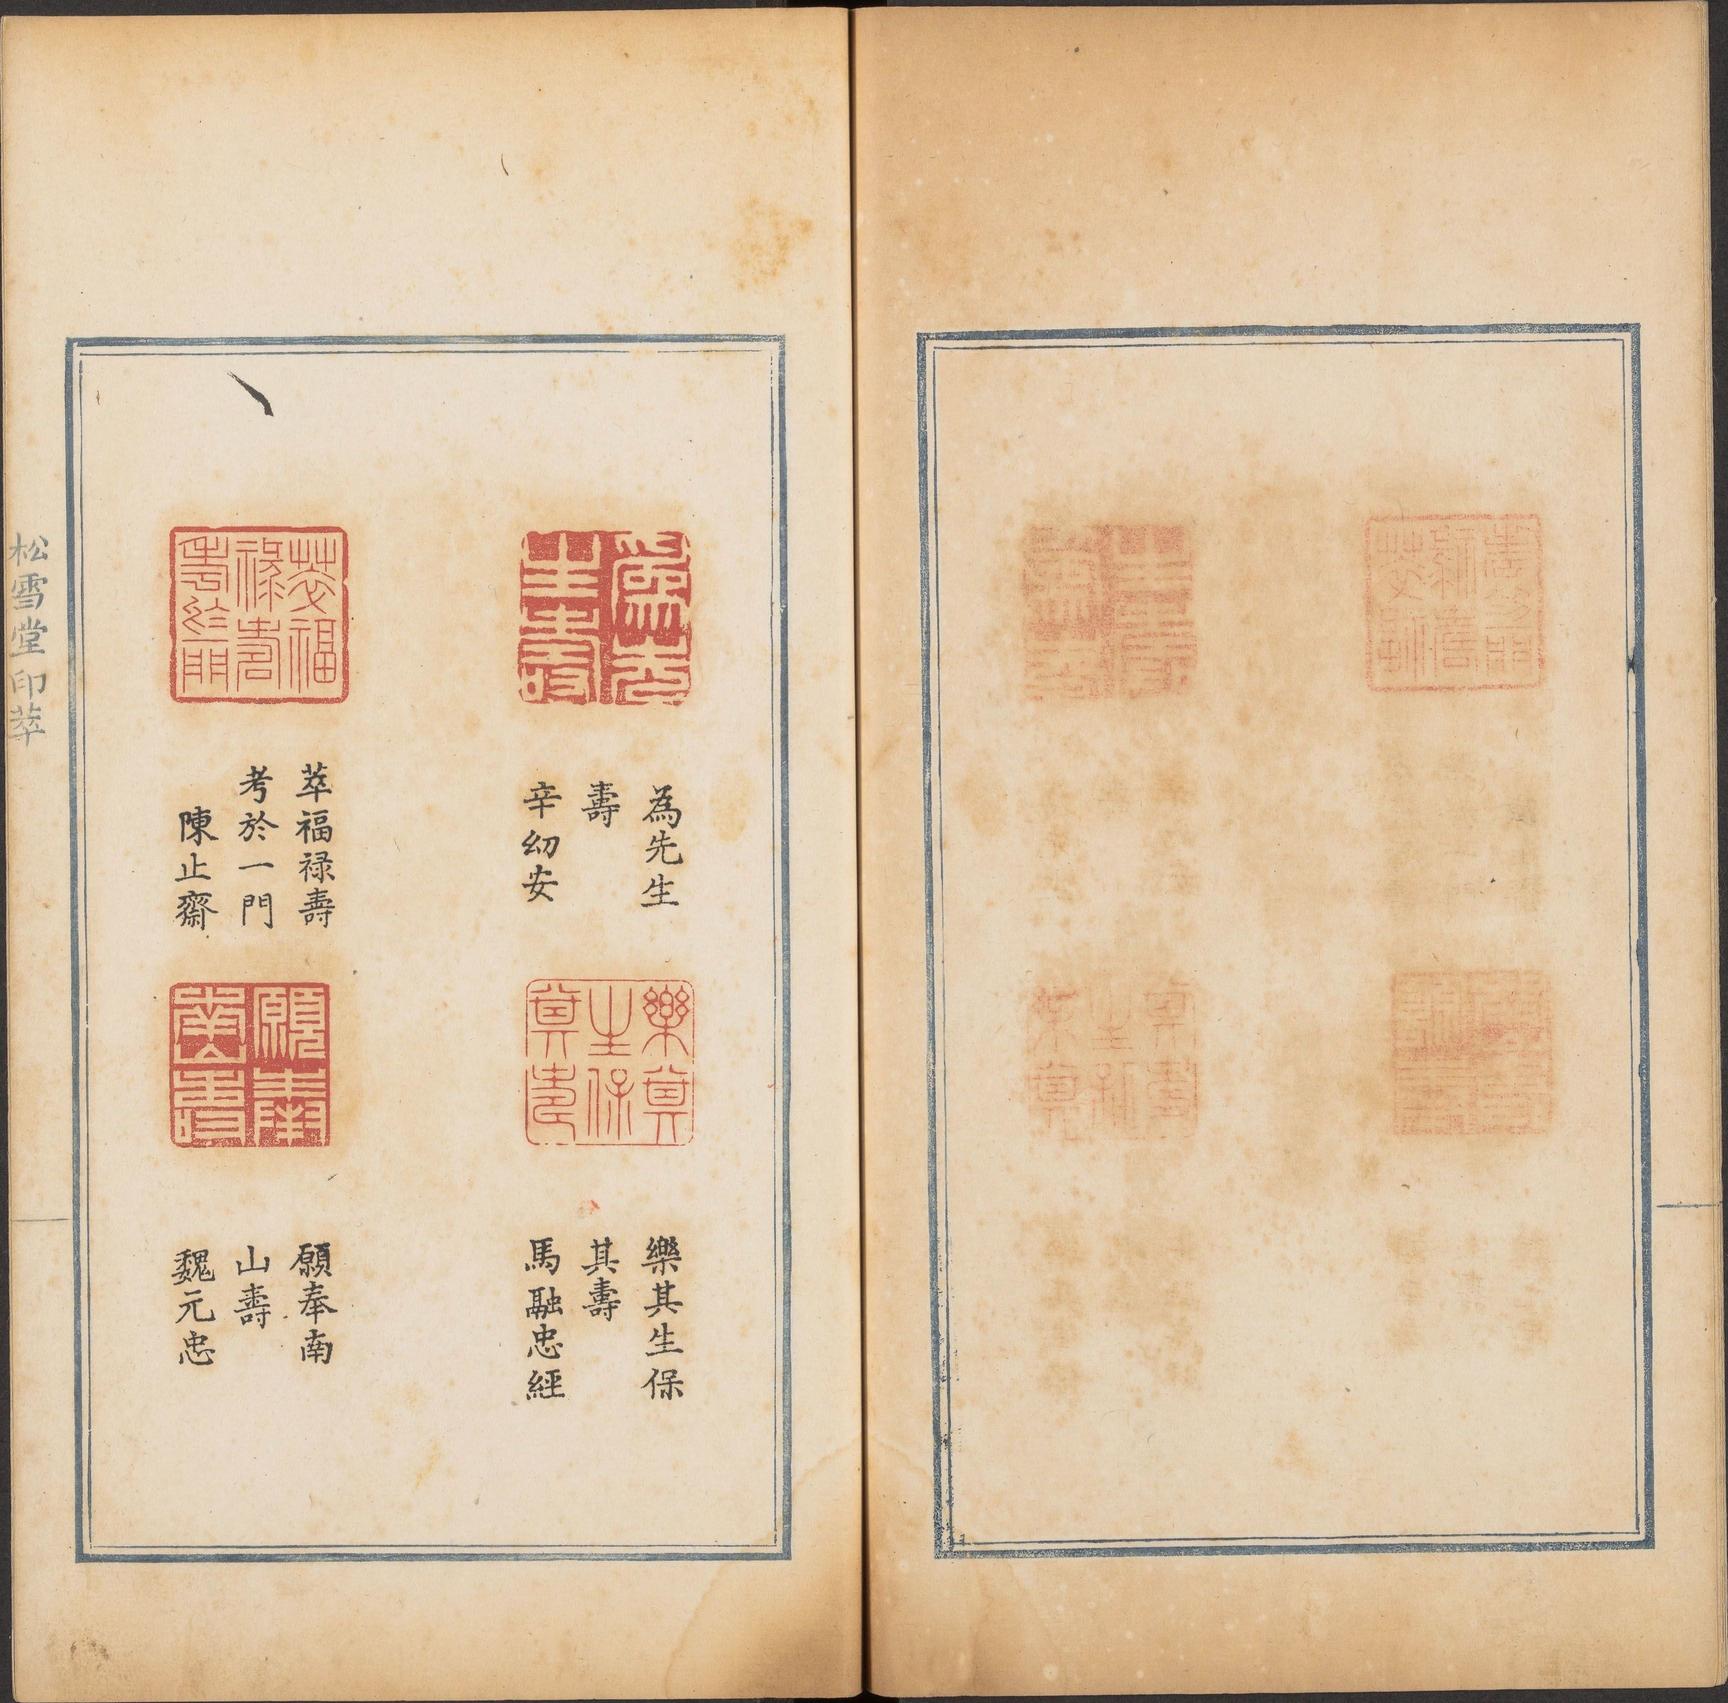 為先生
壽
辛幼安
樂其生保
其壽
馬融忠經
萃福禄壽
考於一門
陳止齋
願奉南
山壽
魏元忠
松雪堂印萃